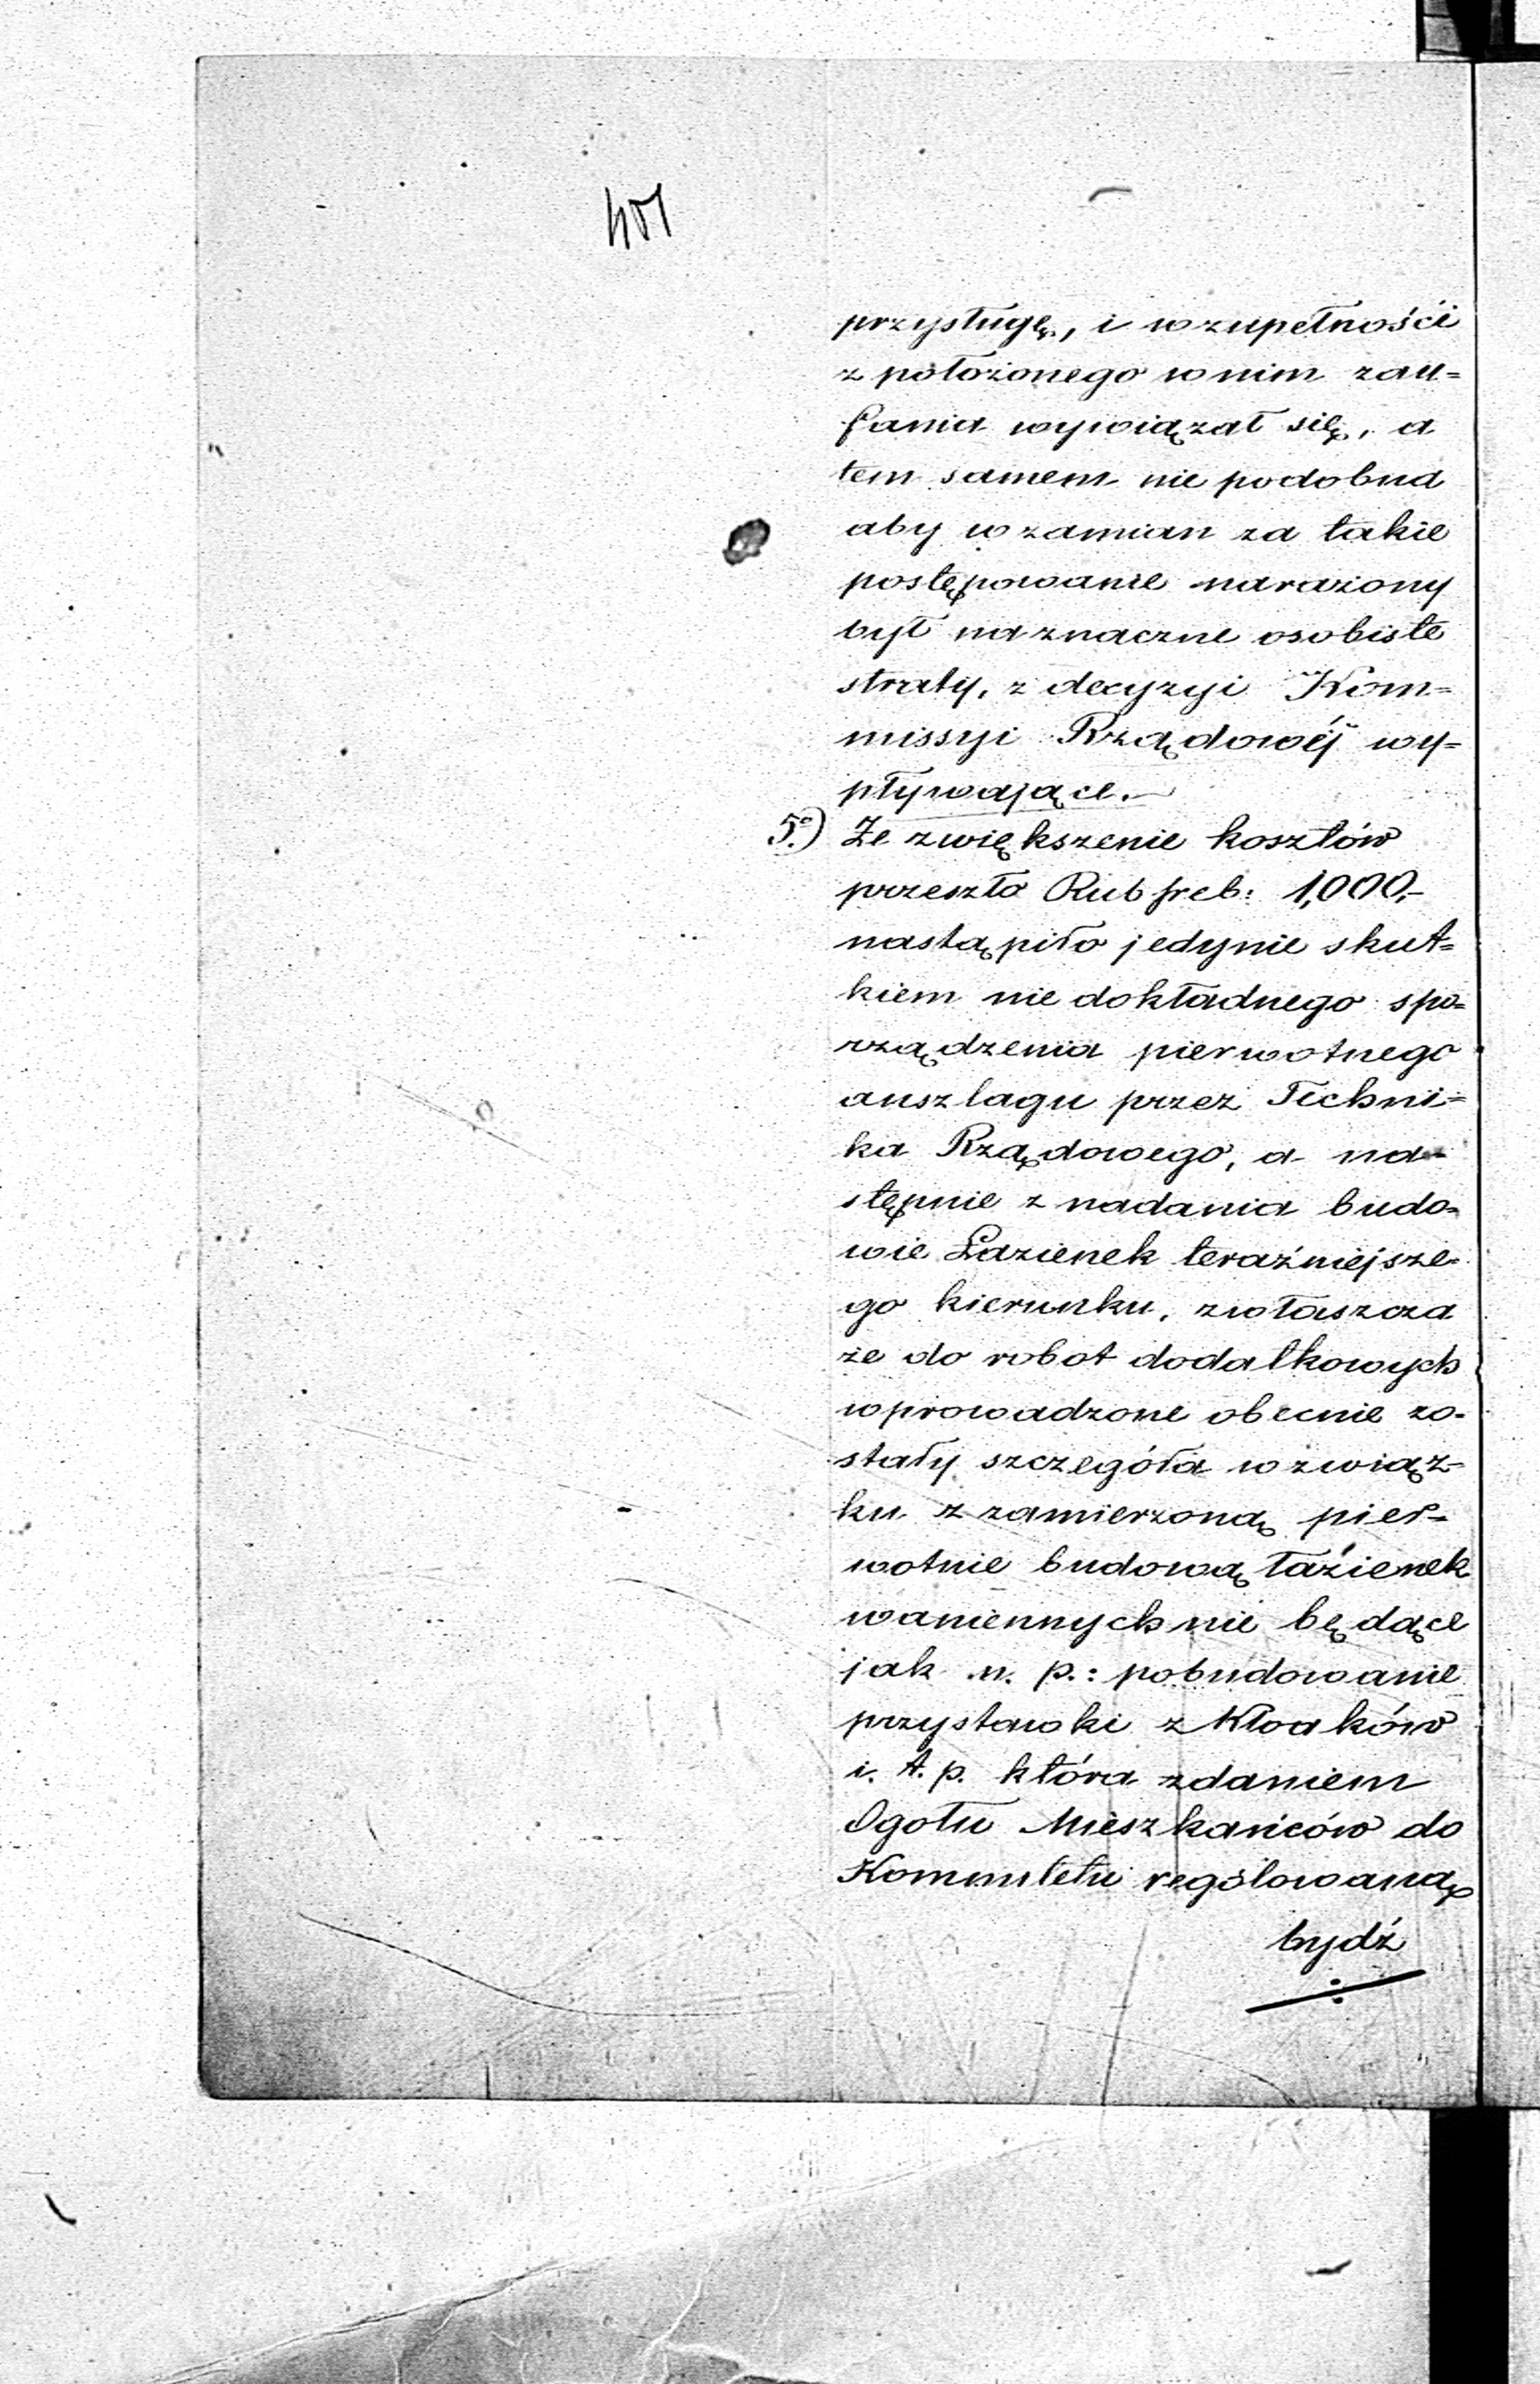 401
przysługę, i w zupełnośći
z położonego w nim zau=
fania wywiązał się, a
tem samem nie podobna
aby w zamian za takie
postępowanie narażony
był na znaczne osobiste
straty, z decyzyi Kom=
missyi Rządowéj wy=
pływające.—
5º) Że zwiększenie kosztów
przeszło Rub sreb: 1,000,-
nastąpiło jedynie skut=
kiem nie dokładnego spo=
rządzenia pierwotnego
anszlagu przez Techni=
ka Rządowego, a na=
stępnie z nadania budo=
wie Łazienek teraźniejsze=
go kierunku, zwłaszcza
że do robot dodatkowych
wprowadzone obecnie zo=
stały szczegóła w związ=
ku z zamierzoną pier=
wotnie budową łaźienek
waniennych nie będące
jak n. p.: pobudowanie
przystawki z Kloaków
i. t. p. która zdaniem
Ogołu Mieszkańców do
Kommitetu rególowaną
bydź